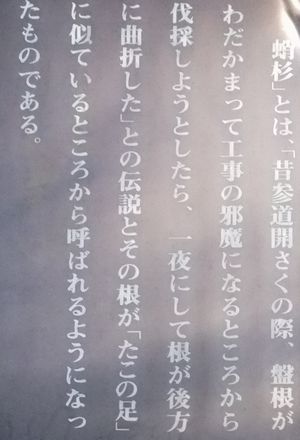 蛸杉」とは、「昔参道開さくの際、盤根が
わだかまって工事の邪魔になるところから
伐採しようとしたら、一夜にして根が後方
に曲折した」との伝説とその根が「たこの足」
に似ているところから呼ばれるようになっ
たものである。